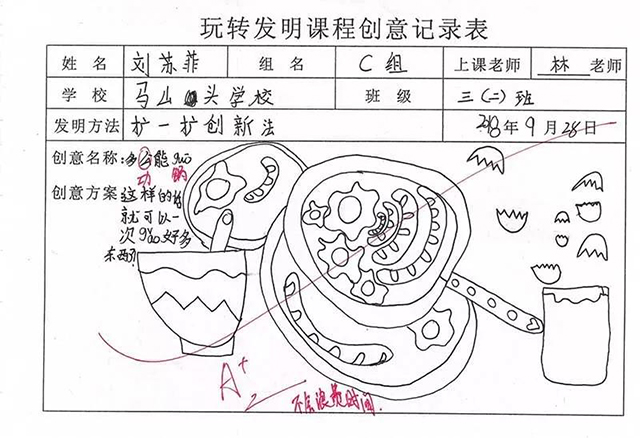 玩转发明课程创意记录表
姓名 刘苏菲 组名 C组 上课老师 林 老师
学校 马山头学校 班级 三(二)班
发明方法 扩一扩创新法 2018年9月28日
创意名称:多公能guo
功 锅
创意方案 这样的话
就可以一
次guo好多
东西了
A+
不会浪费时间.